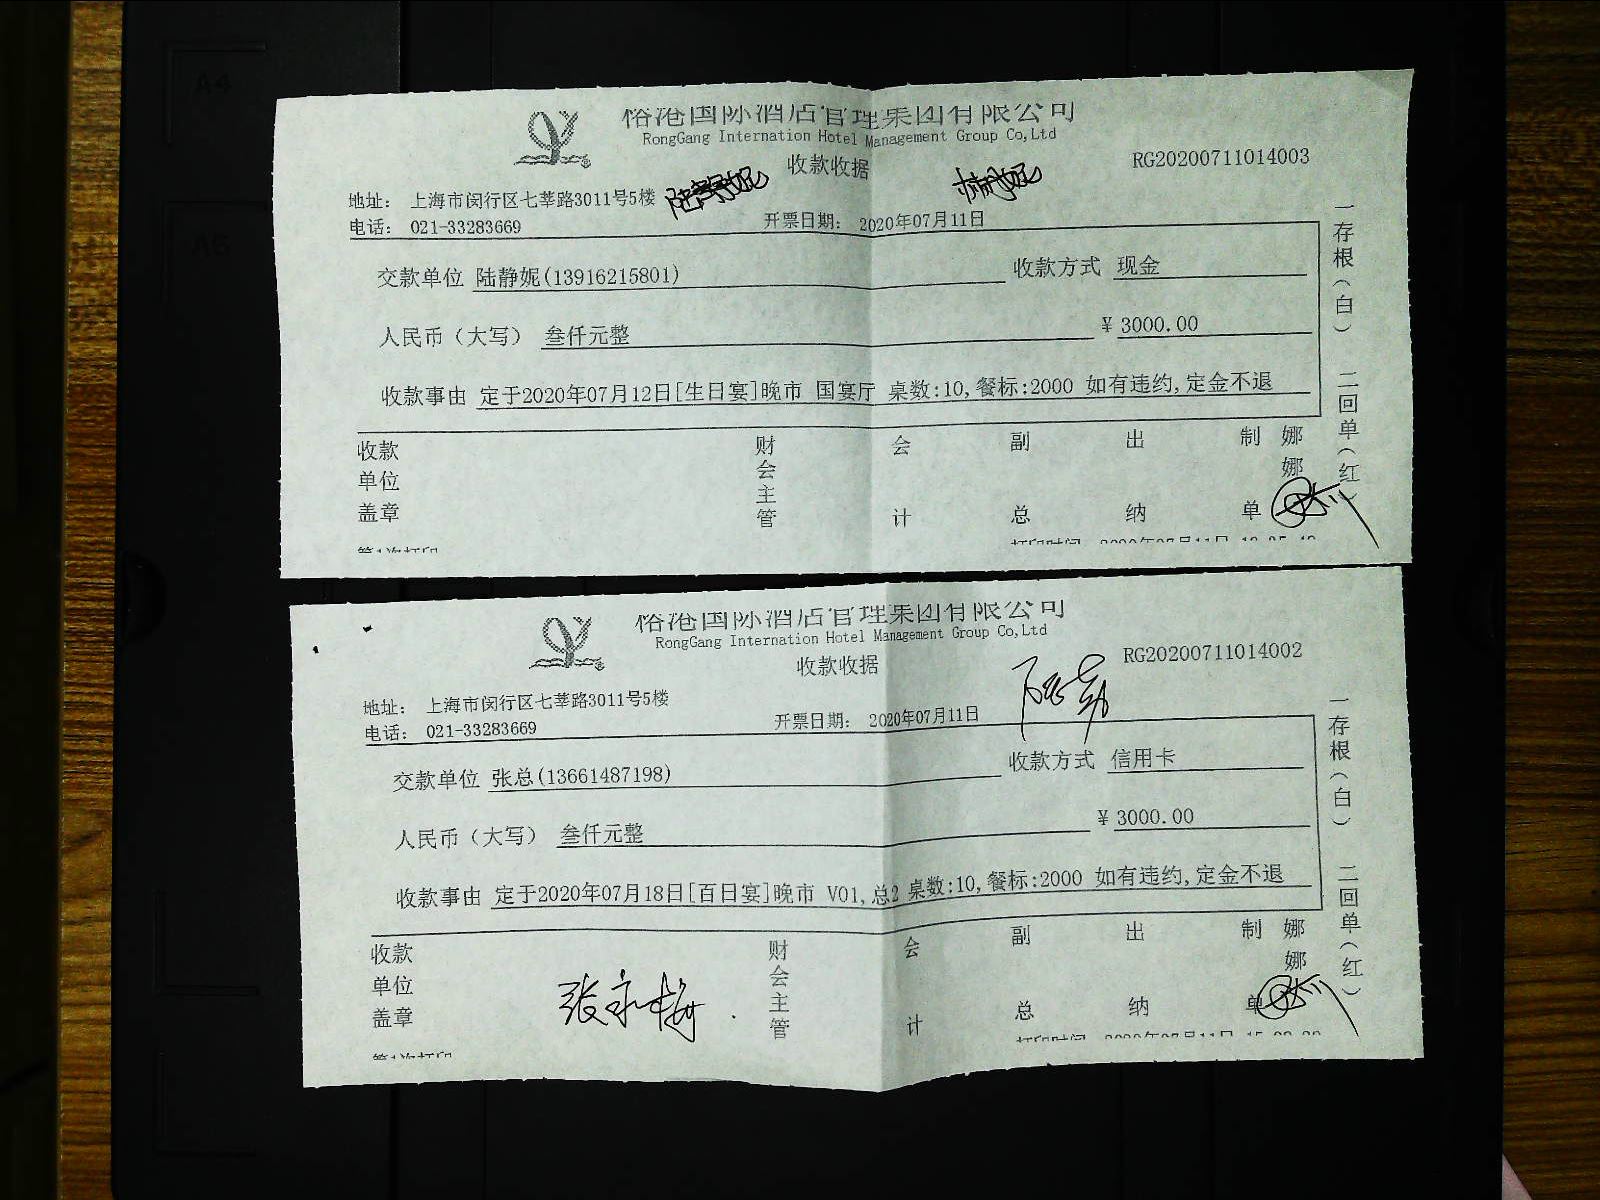 A4
A5
俗港国际酒店管理集团有限公司
RongGang Internation Hotel Management Group Co,Ltd
收款收据
RG20200711014003
地址： 上海市闵行区七莘路3011号5楼
电话： 021-33283669
开票日期： 2020年07月11日
交款单位 陆静妮(13916215801) 收款方式 现金
人民币（大写） 叁仟元整 ¥ 3000.00
收款事由 定于2020年07月12日[生日宴]晚市 国宴厅 桌数:10,餐标:2000 如有违约,定金不退
收款单位盖章 财会主管 会计 副总 出纳 制单 娜娜
一存根（白） 二回单（红）
第1次打印 打印时间 2020年07月11日
俗港国际酒店管理集团有限公司
RongGang Internation Hotel Management Group Co,Ltd
收款收据
RG20200711014002
地址： 上海市闵行区七莘路3011号5楼
电话： 021-33283669
开票日期： 2020年07月11日
交款单位 张总(13661487198) 收款方式 信用卡
人民币（大写） 叁仟元整 ¥ 3000.00
收款事由 定于2020年07月18日[百日宴]晚市 V01,总2 桌数:10,餐标:2000 如有违约,定金不退
收款单位盖章 张永梅 财会主管 会计 副总 出纳 制单 娜娜
一存根（白） 二回单（红）
第1次打印 打印时间 2020年07月11日